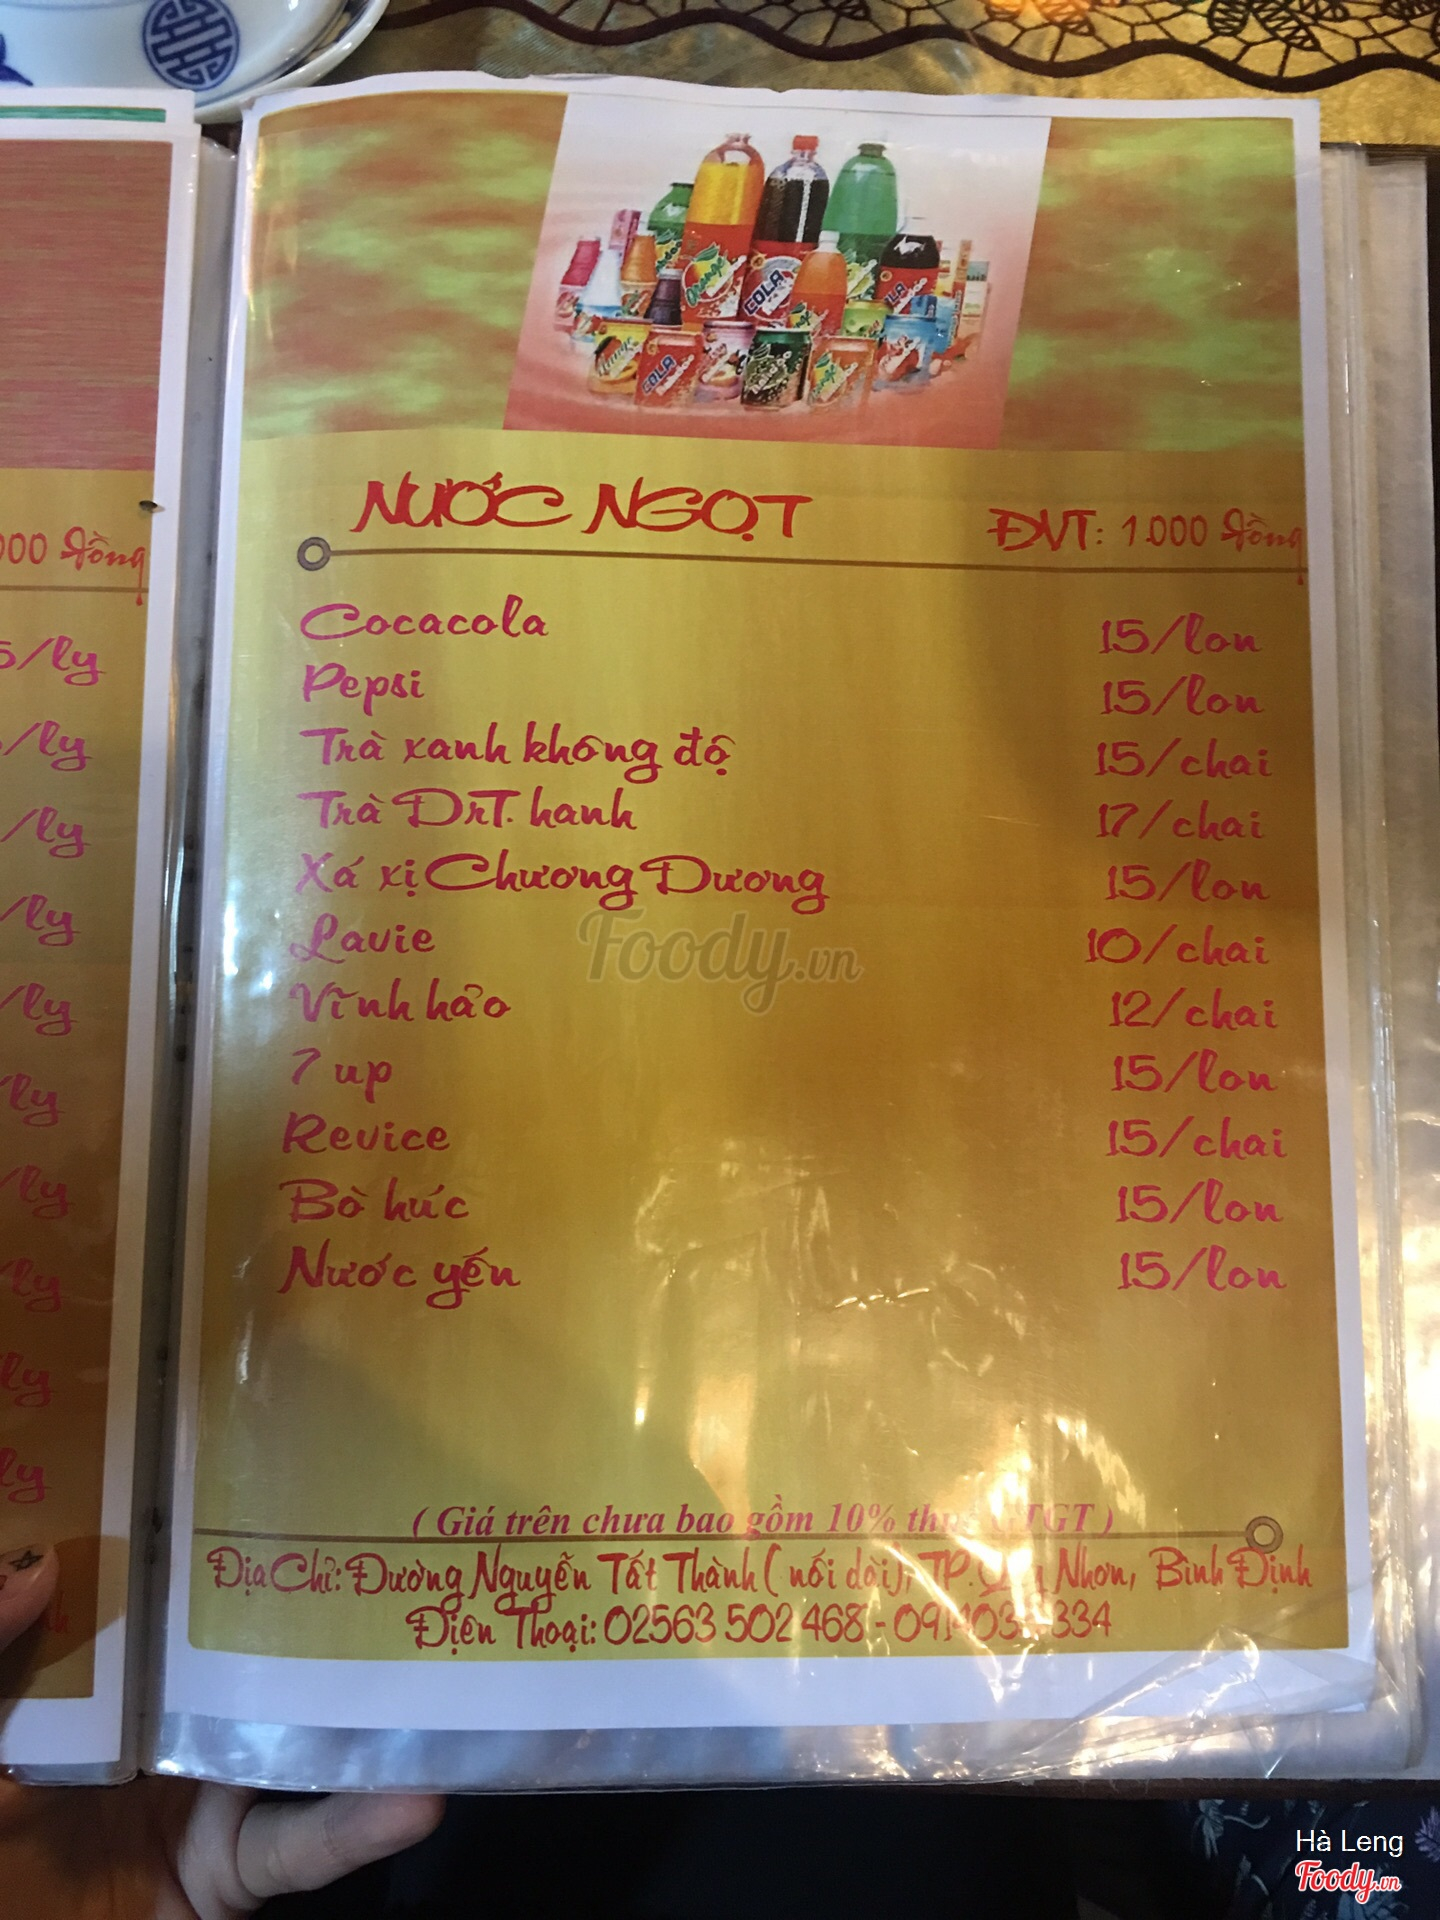 NƯỚC NGỌT
ĐVT: 1.000 đồng
Cocacola 15/lon
Pepsi 15/lon
Trà xanh không độ 15/chai
Trà DrT.hanh 17/chai
Xá xị Chương Dương 15/lon
Lavie 10/chai
Vĩnh hảo 12/chai
7 up 15/lon
Revice 15/chai
Bò húc 15/lon
Nước yến 15/lon
( Giá trên chưa bao gồm 10% GTGT )
Địa Chỉ: Đường Nguyễn Tất Thành ( nối dài), TP.Quy Nhơn, Bình Định
Điện Thoại: 02563 502 468 -
000 đồng
5/ly
/ly
/ly
/ly
/ly
/ly
/ly
/ly
ly
ly
Foody.vn
Hà Leng
Foody.vn